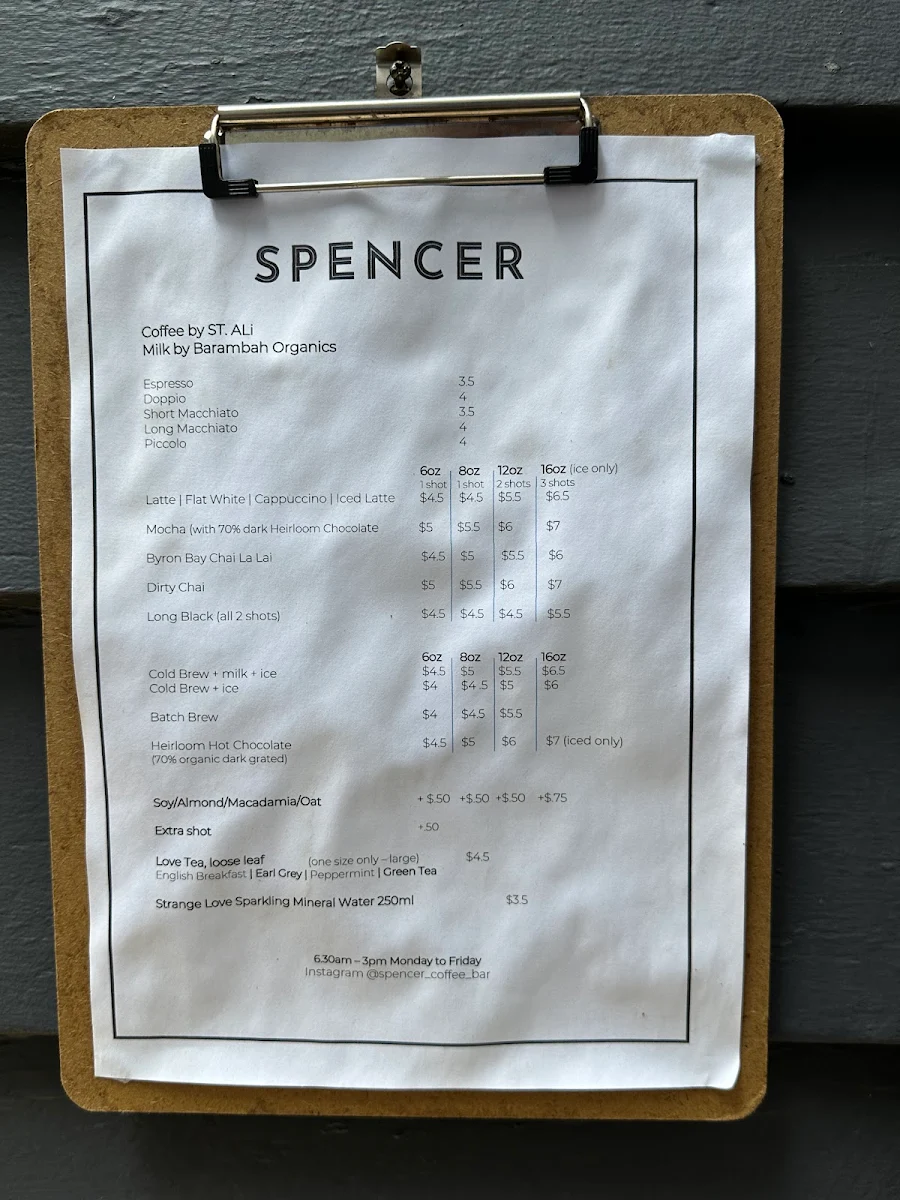 SPENCER
Coffee by ST. ALi
Milk by Barambah Organics
Espresso 3.5
Doppio 4
Short Macchiato 3.5
Long Macchiato 4
Piccolo 4
6oz 8oz 12oz 16oz (ice only)
1 shot 1 shot 2 shots 3 shots
Latte | Flat White | Cappuccino | Iced Latte $4.5 $4.5 $5.5 $6.5
Mocha (with 70% dark Heirloom Chocolate $5 $5.5 $6 $7
Byron Bay Chai La Lai $4.5 $5 $5.5 $6
Dirty Chai $5 $5.5 $6 $7
Long Black (all 2 shots) $4.5 $4.5 $4.5 $5.5
6oz 8oz 12oz 16oz
Cold Brew + milk + ice $4.5 $5 $5.5 $6.5
Cold Brew + ice $4 $4 .5 $5 $6
Batch Brew $4 $4.5 $5.5
Heirloom Hot Chocolate $4.5 $5 $6 $7 (iced only)
(70% organic dark grated)
Soy/Almond/Macadamia/Oat + $.50 +$.50 +$.50 +$.75
Extra shot +.50
Love Tea, loose leaf (one size only – large) $4.5
English Breakfast | Earl Grey | Peppermint | Green Tea
Strange Love Sparkling Mineral Water 250ml $3.5
6.30am – 3pm Monday to Friday
Instagram @spencer_coffee_bar